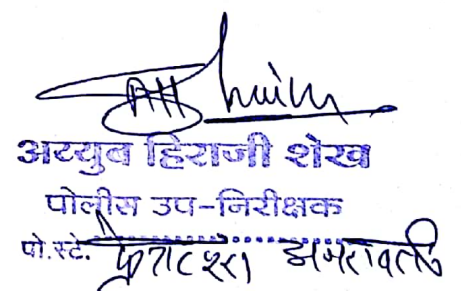 अय्युब हिराजी शेख
पोलीस उप-निरीक्षक
पो.स्टे. अमरावती